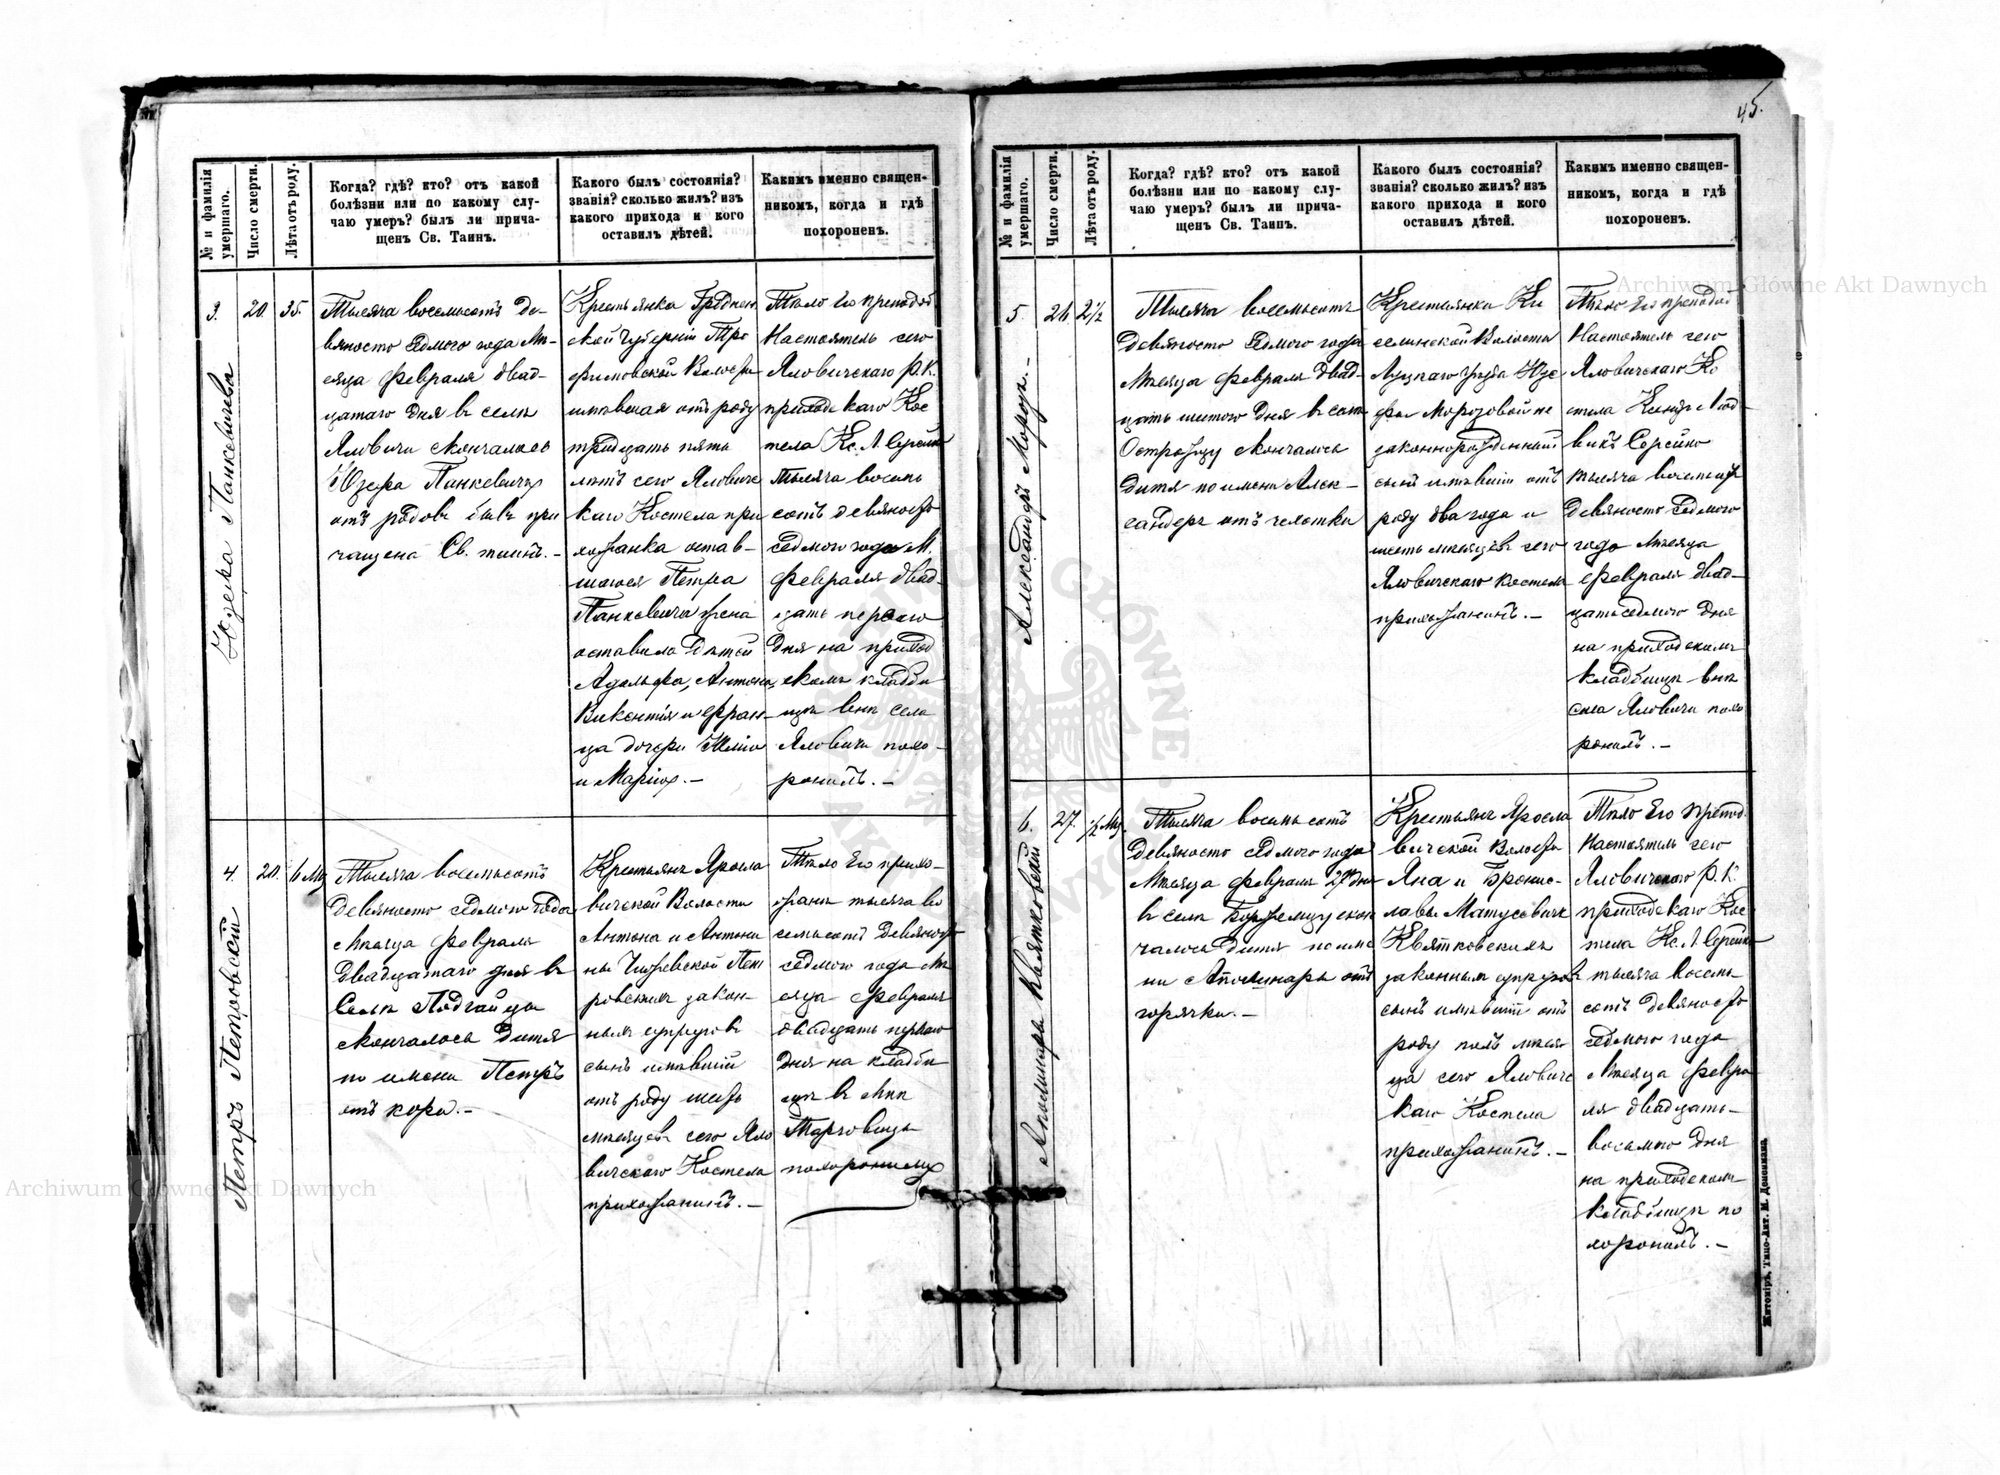 45.
№ и фамилія умершаго.
Число смерти.
Лѣта отъ роду.
Когда? гдѣ? кто? отъ какой
болѣзни или по какому слу-
чаю умеръ? былъ ли прича-
щенъ Св. Таинъ.
Какого былъ состоянія?
званія? сколько жилъ? изъ
какого прихода и кого
оставилъ дѣтей.
Какимъ именно священ-
никомъ, когда и гдѣ
похороненъ.
3.
20.
35.
Юзефа Панкевичева
Тысяча восемьсотъ де-
вяносто седмого года Мѣ-
сяца Февраля двад-
цатаго дня въ селѣ
Яловичи скончалась
Юзефа Панкевичъ
отъ родовъ бывъ при
чащена Св. таинъ. –
Крестьянка Гроднен
ской Губерніи Тро
фимовской Волости
имѣвшая отъ роду
тридцать пять
лѣтъ сего Яловичс
каго Костела при
хожанка остав-
шагося Петра
Панкевича жена
оставила дѣтей
Адольфа, Антона,
Викентія и Фран-
ца дочери
и Марію. –
Тѣло Ея преподоб
Настоятель сего
Яловичскаго Р. К.
приходскаго Кос
тела Кс. Л. Серейко
тысяча восемь
сотъ девяносто
седмого года М.
Февраля двад-
цать перваго
дня на приход
скомъ кладби
щѣ внѣ села
Яловичи похо-
ронилъ. –
4.
20.
6 Мц
Петръ Петровскій
Тысяча восемьсотъ
девяносто седмого года
Мѣсяца Февраля
двадцатаго дня въ
Селѣ Подгайцы
скончалось дитя
по имени Петръ
отъ кори. –
Крестьянъ Яросла
вичской Волости
Антона и Антони
ны Чижевской Пет
ровскихъ закон-
ныхъ супруговъ
сынъ имѣвшій
отъ роду шесть
мѣсяцевъ сего Яло
вичскаго Костела
прихожанинъ. –
Тѣло Его прихо-
жане тысяча во
семьсотъ девяносто
седмого года Мѣ
сяца Февраля
двадцать перваго
дня на кладби
щѣ в Мѣс
Торговица
похоронили
№ и фамилія умершаго.
Число смерти.
Лѣта отъ роду.
Когда? гдѣ? кто? отъ какой
болѣзни или по какому слу-
чаю умеръ? былъ ли прича-
щенъ Св. Таинъ.
Какого былъ состоянія?
званія? сколько жилъ? изъ
какого прихода и кого
оставилъ дѣтей.
Какимъ именно священ-
никомъ, когда и гдѣ
похороненъ.
5.
26
2½
Александръ Морозъ. –
Тысяча восемьсотъ
девяносто седмого года
Мѣсяца Февраля двад-
цать шестого дня въ
Острожцу скончалось
дитя по имени Алек-
сандеръ отъ чехотки
Крестьянки Кн
селинской Волости
Луцкаго уѣзда Юзе
фы Морозовой не
законнорожденный
сынъ имѣвшій отъ
роду два года и
шесть мѣсяцевъ сего
Яловичскаго костела
прихожанинъ. –
Тѣло Его преподоб
Настоятель сего
Яловичскаго Ко
стела Ксендзъ Люд-
викъ Серейко
тысяча восемьсотъ
девяносто седмого
года Мѣсяца
Февраля двад-
цать седмого дня
на приходскомъ
кладбищѣ внѣ
села Яловичи похо
ронилъ. –
6.
27.
½ Мц.
Аполинаръ Квятковскій
Тысяча восемьсотъ
девяносто седмого года
Мѣсяца Февраля 27 дня
въ селѣ скон
чалось дитя по име
ни Аполинаръ отъ
горячки. –
Крестьянъ Яросла
вичской Волости
Яна и Бронис-
лавы Матусевичъ
Квятковскихъ
законныхъ супруговъ
сынъ имѣвшій отъ
роду полъ мѣся
ца сего Яловичс
каго Костела
прихожанинъ. –
Тѣло Его Препод.
Настоятель сего
Яловичскаго Р. К.
приходскаго Кос
тела Кс. Л. Серейко
тысяча восемь
сотъ девяносто
седмого года
Мѣсяца Февра
ля двадцать-
восьмого дня
на приходскомъ
кладбищѣ по
хоронилъ. –
Житоміръ, Типо-Лит. М. Дененмана
Archiwum Główne Akt Dawnych
Archiwum Główne Akt Dawnych